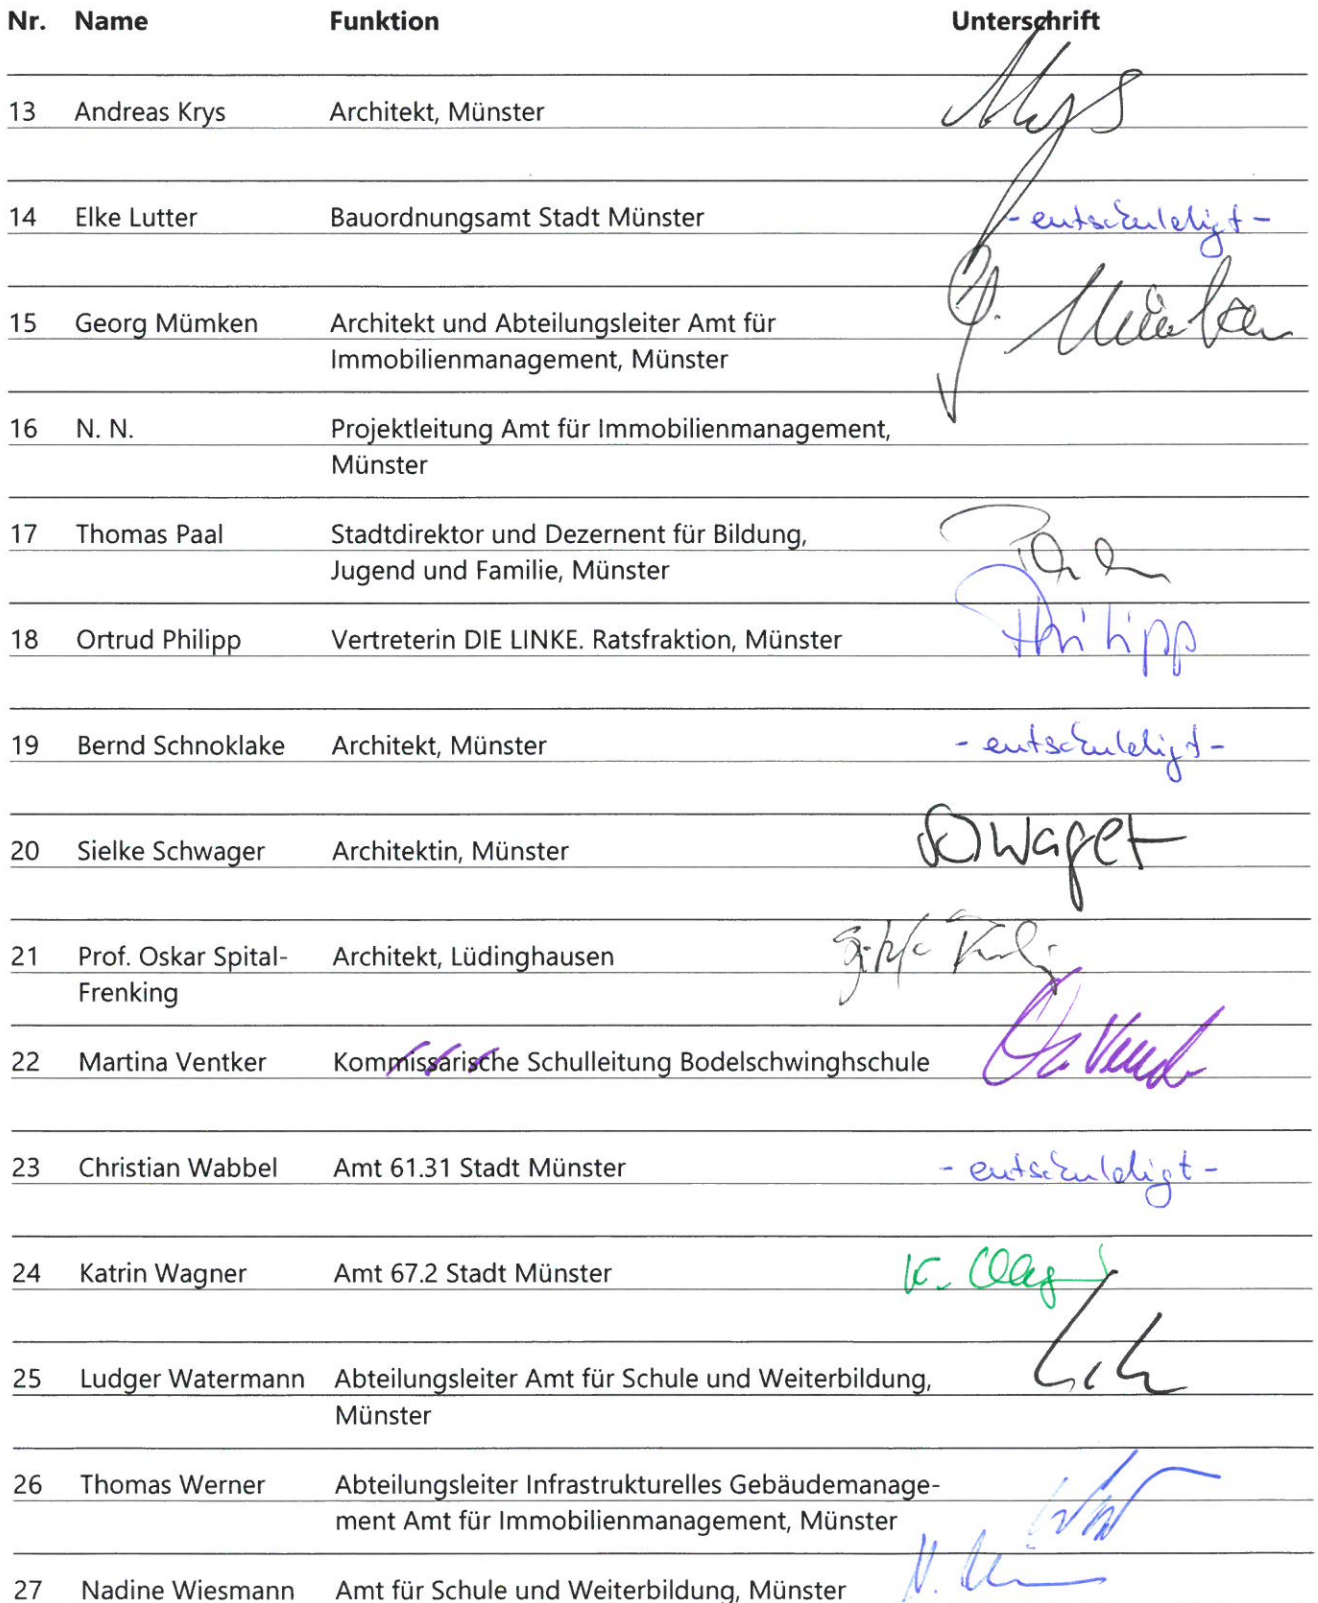 Nr. Name Funktion Unterschrift
13 Andreas Krys Architekt, Münster
14 Elke Lutter Bauordnungsamt Stadt Münster - entschuldigt -
15 Georg Mümken Architekt und Abteilungsleiter Amt für
Immobilienmanagement, Münster
16 N. N. Projektleitung Amt für Immobilienmanagement,
Münster
17 Thomas Paal Stadtdirektor und Dezernent für Bildung,
Jugend und Familie, Münster
18 Ortrud Philipp Vertreterin DIE LINKE. Ratsfraktion, Münster Philipp
19 Bernd Schnoklake Architekt, Münster - entschuldigt -
20 Sielke Schwager Architektin, Münster Schwager
21 Prof. Oskar Spital- Architekt, Lüdinghausen
Frenking
22 Martina Ventker Kommissarische Schulleitung Bodelschwinghschule
23 Christian Wabbel Amt 61.31 Stadt Münster - entschuldigt -
24 Katrin Wagner Amt 67.2 Stadt Münster
25 Ludger Watermann Abteilungsleiter Amt für Schule und Weiterbildung,
Münster
26 Thomas Werner Abteilungsleiter Infrastrukturelles Gebäudemanage-
ment Amt für Immobilienmanagement, Münster
27 Nadine Wiesmann Amt für Schule und Weiterbildung, Münster